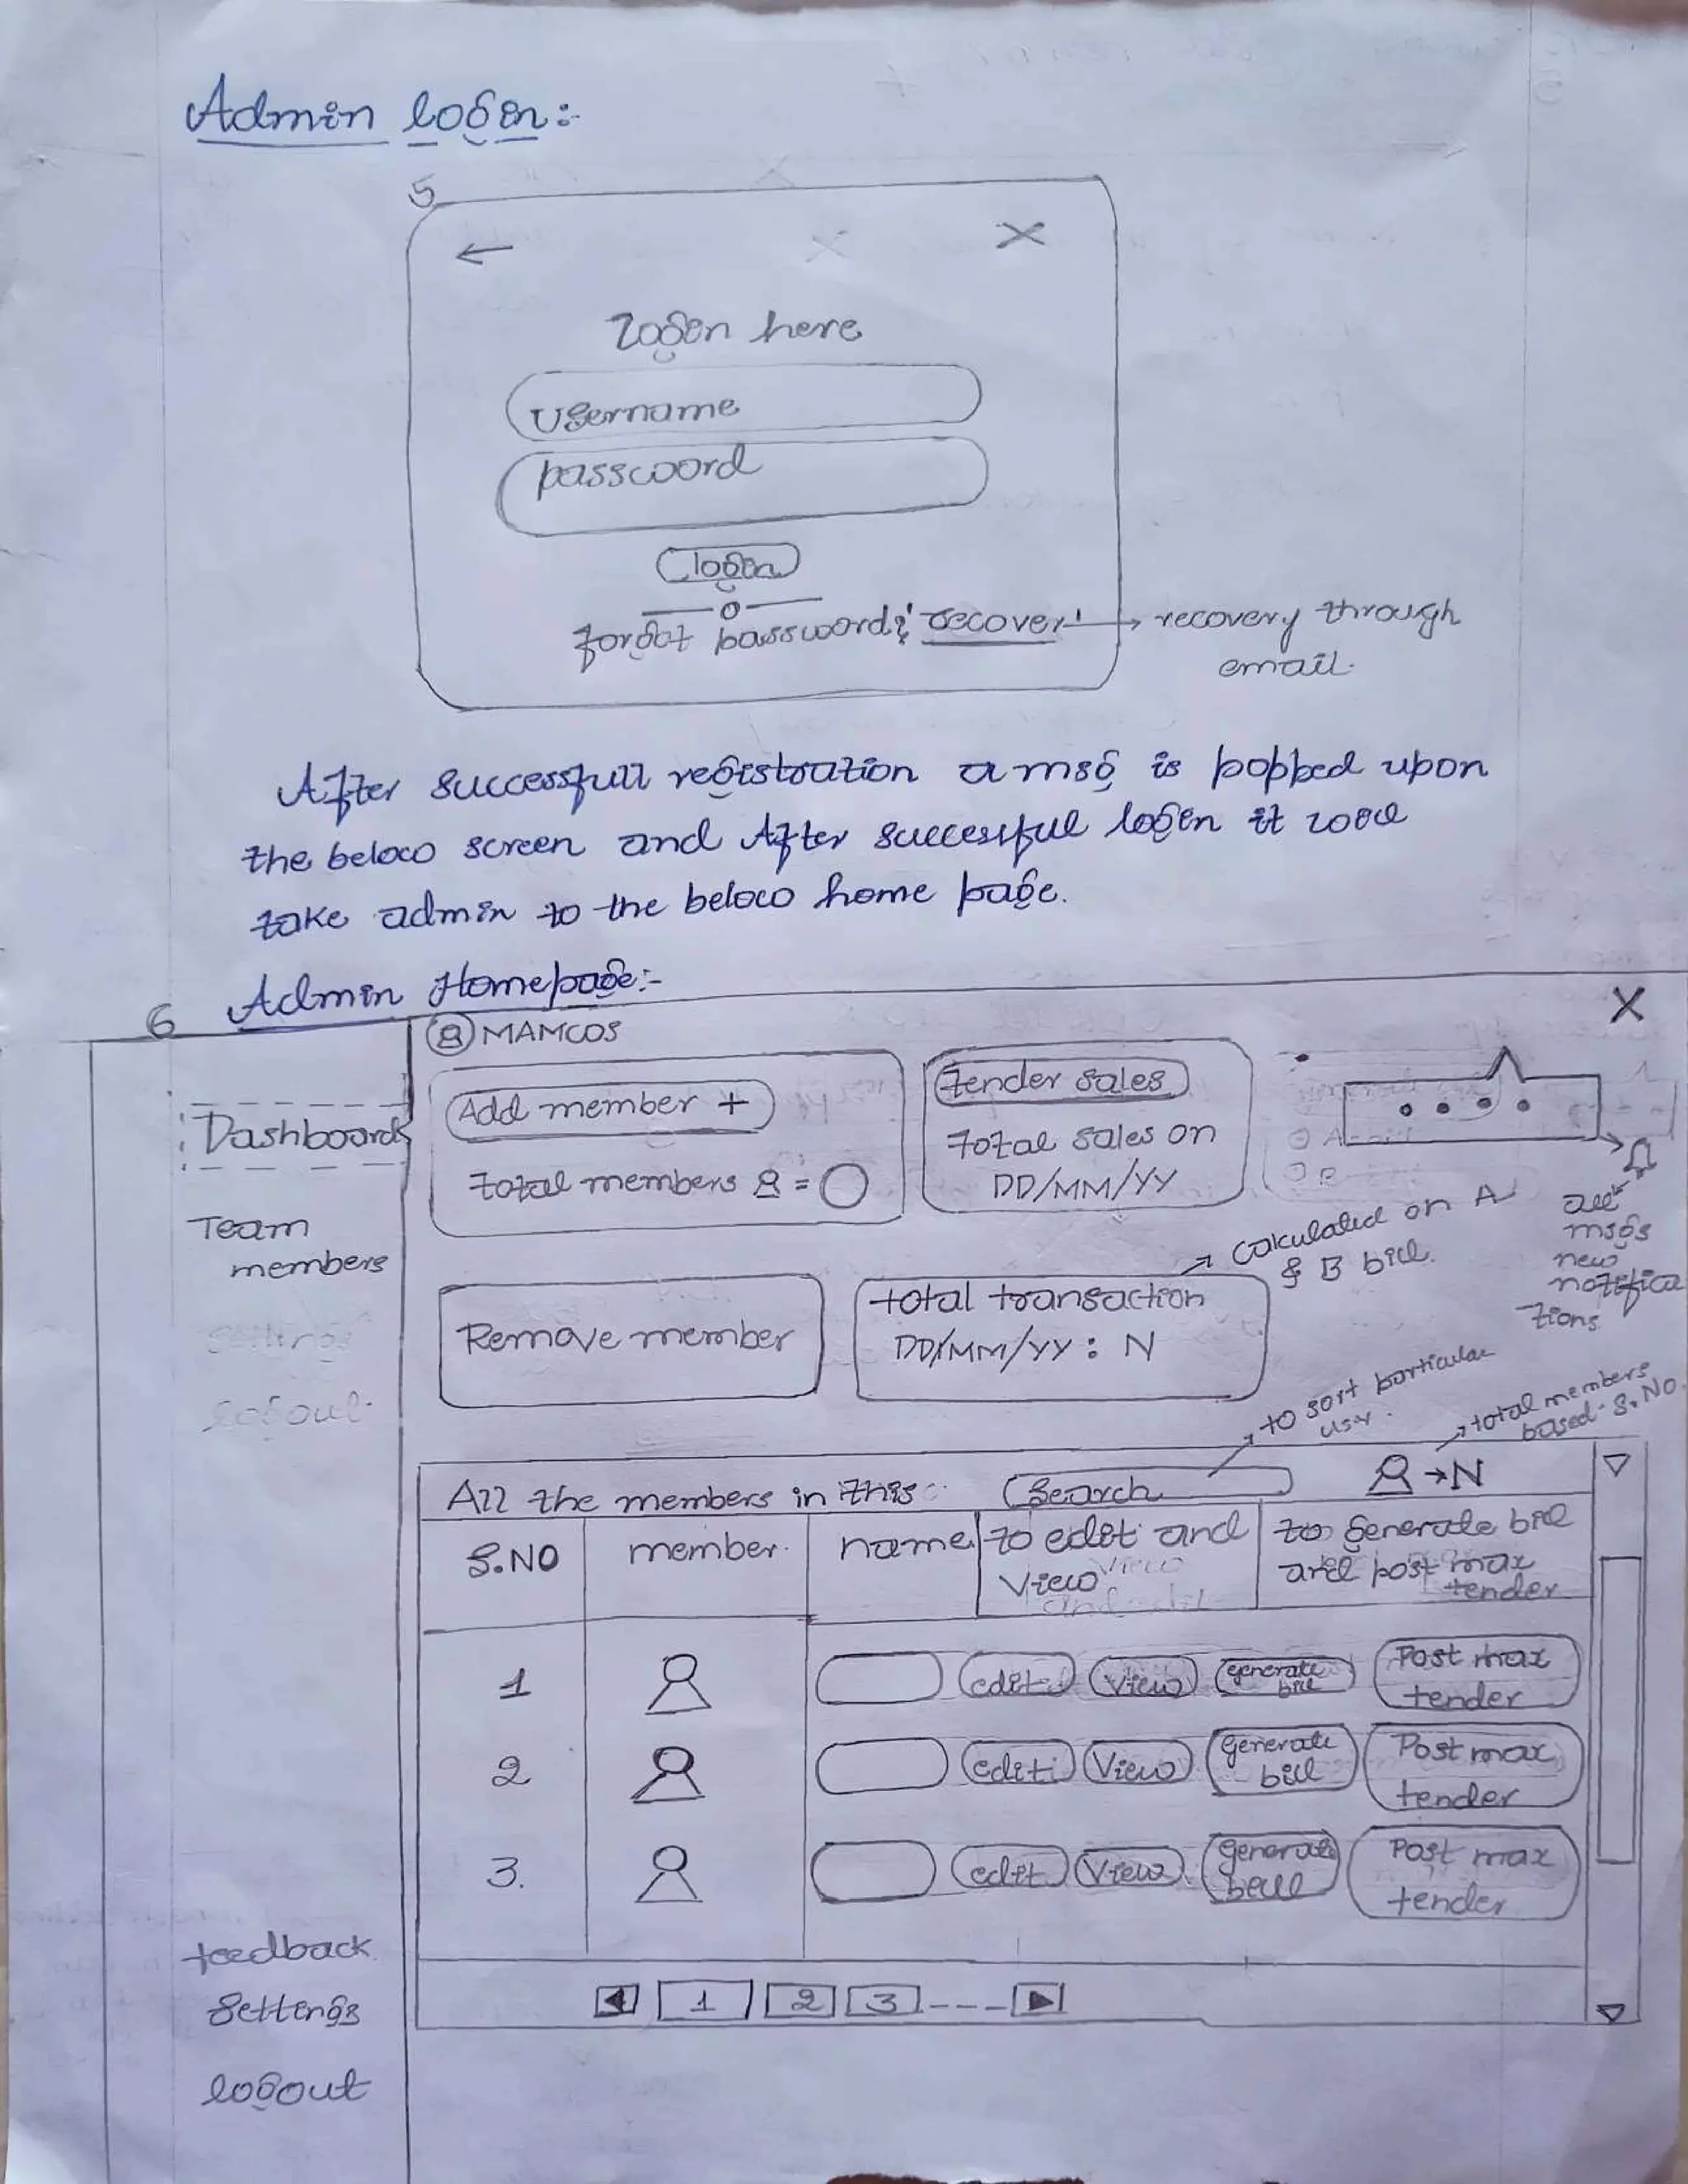 Admin login:-
5
← X
Login here
Username
password
login
forgot password? 'recover' → recovery through
email.
After successfull registration a msg is popped upon
the below screen and After successful login it will
take admin to the below home page.
Admin Homepage:-
6
X
MAMCOS
Add member +
Total members =
Tender sales
Total sales on
DD/MM/YY
Dashboard
Team
members
Settings
logout
all
msgs
new
notifica
tions
Remove member
total transaction
DD/MM/YY : N
→ Calculated on A
& B bill.
→ to sort particular
usr.
→ total members
based S.NO.
All the members in this
Search
→N
S.NO member name to edit and
view
to generate bill
and post max
tender
1 edit view generate
bill
Post max
tender
2 edit view generate
bill
Post max
tender
3. edit view generate
bill
Post max
tender
1 2 3 ---
feedback
Settings
logout